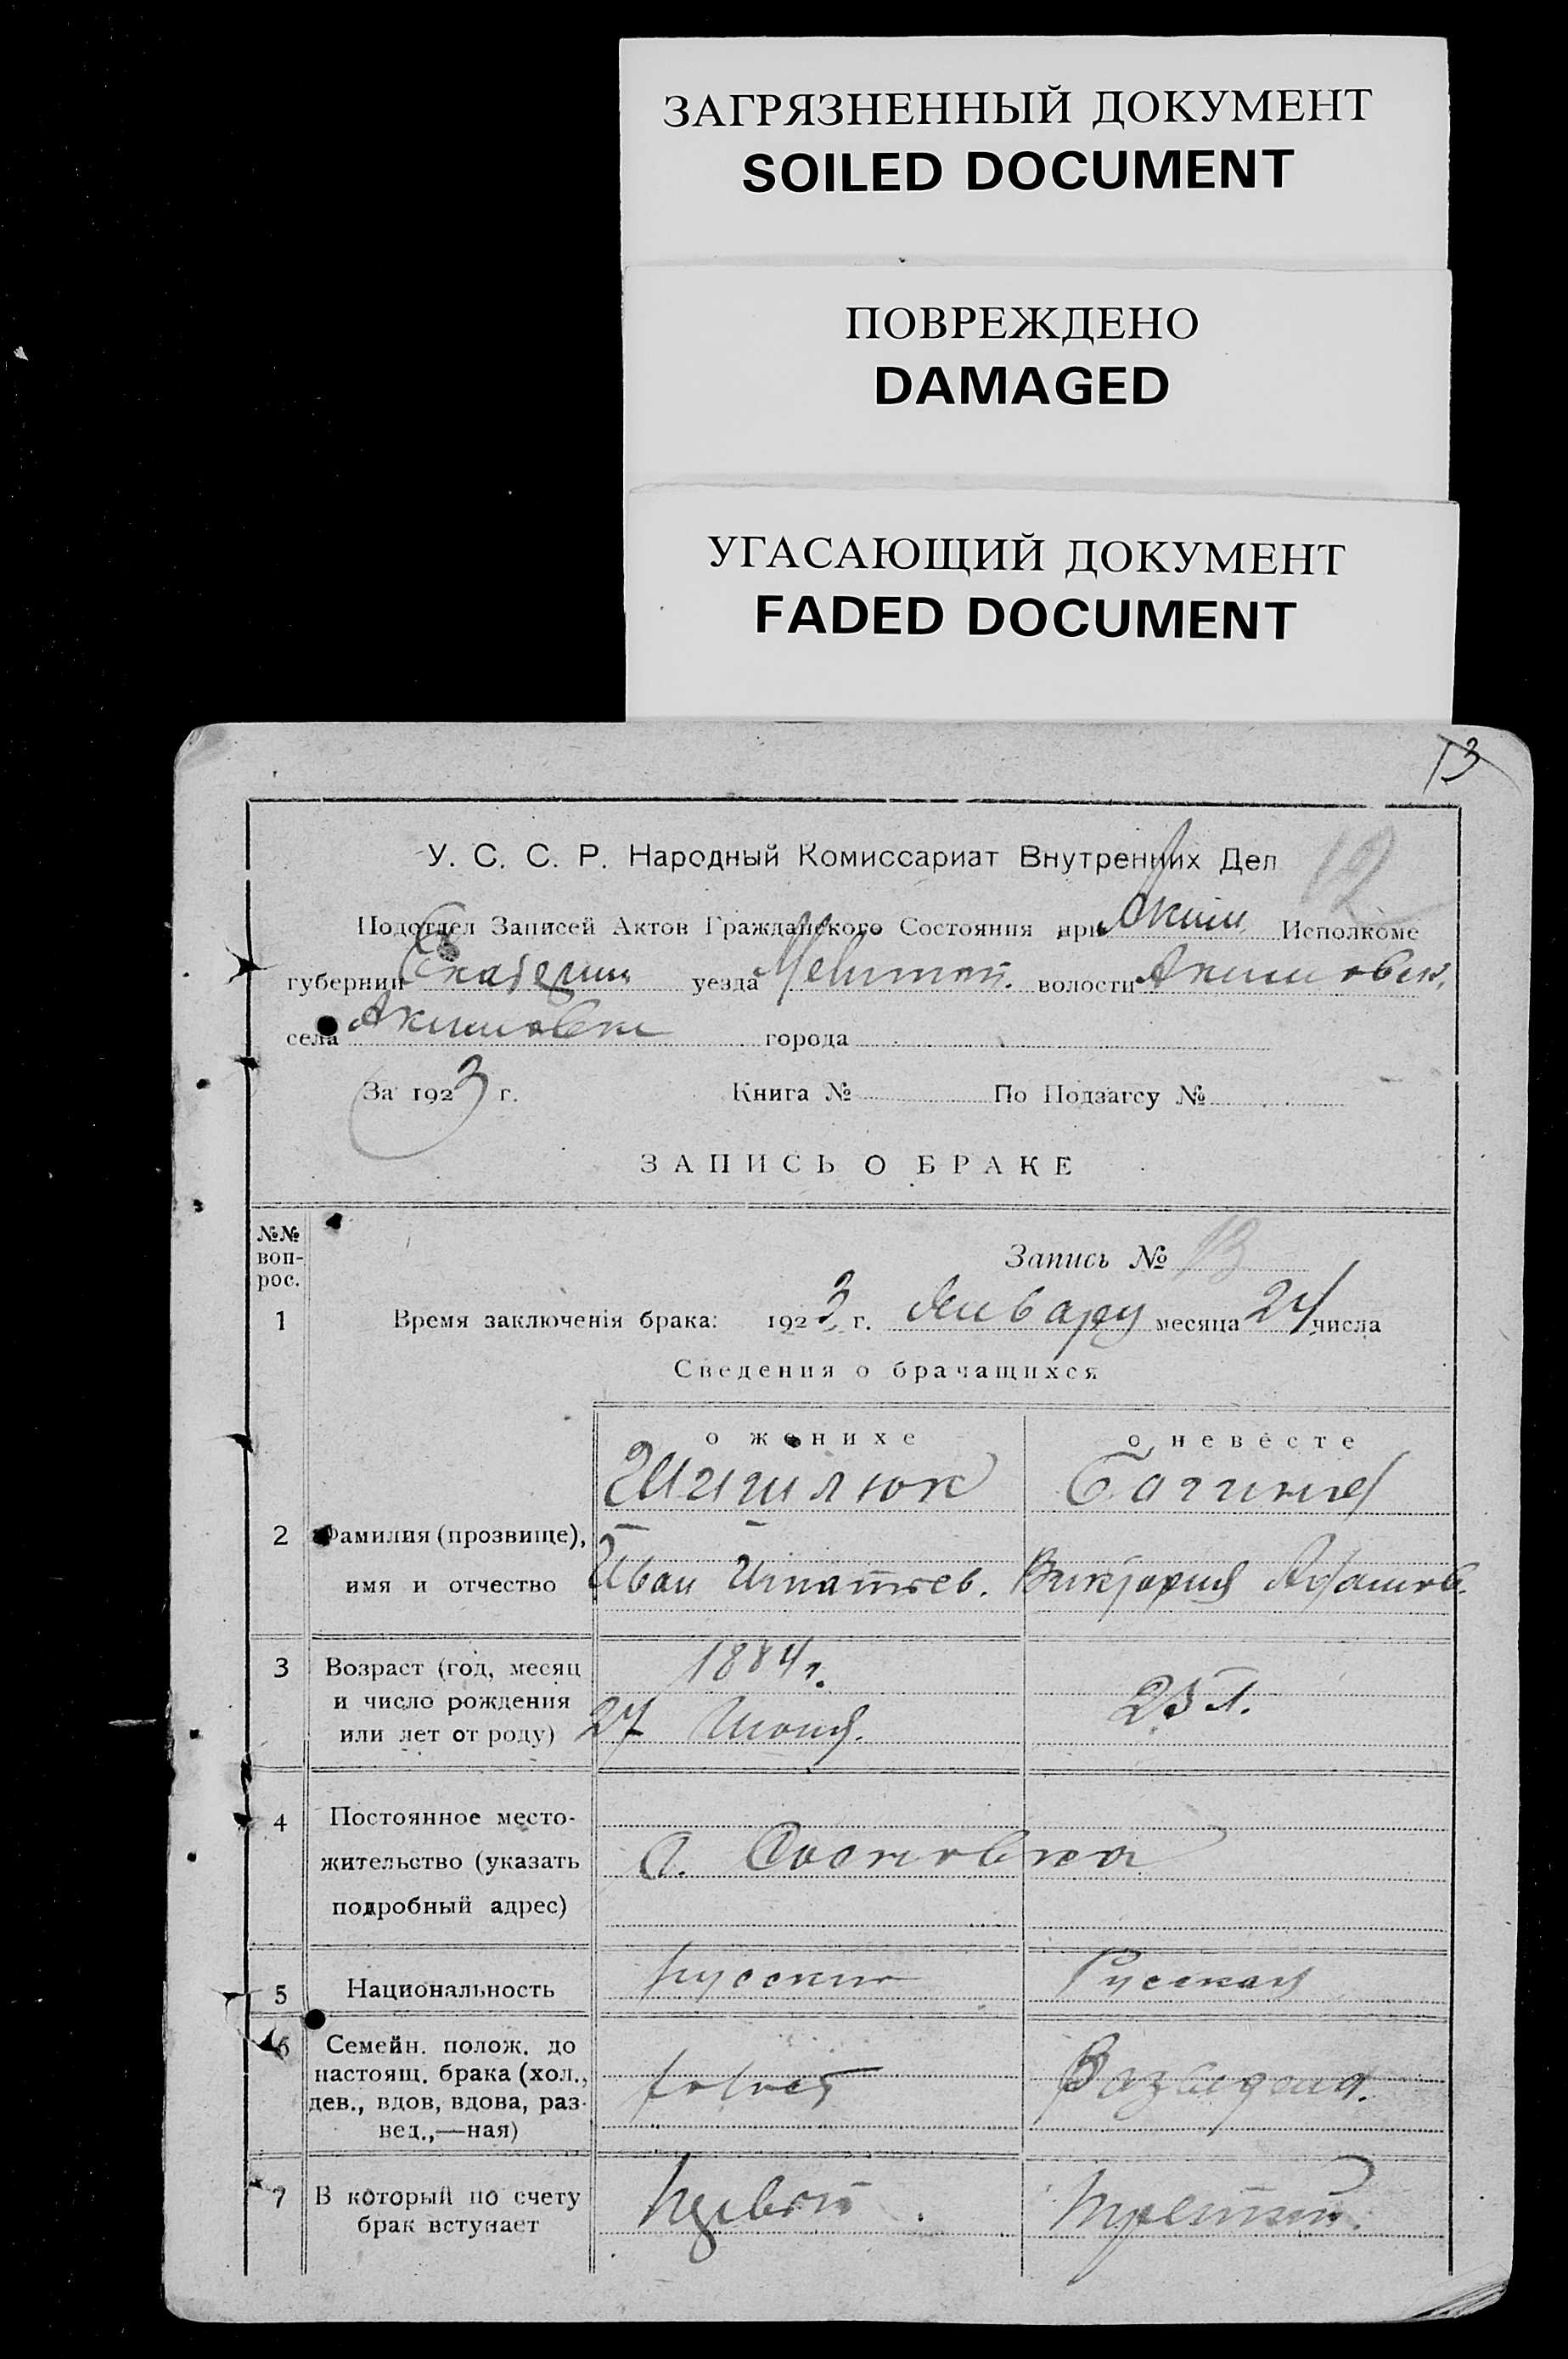 ЗАГРЯЗНЕННЫЙ ДОКУМЕНТ
SOILED DOCUMENT
ПОВРЕЖДЕНО
DAMAGED
УГАСАЮЩИЙ ДОКУМЕНТ
FADED DOCUMENT
13
12
У. С. С. Р. Народный Комиссариат Внутренних Дел
Подотдел Записей Актов Гражданского Состояния при Аким. Исполкоме
губернии Екатерин уезда Мелитоп. волости Акимовск.
села Акимовки города
За 1923 г. Книга № По Подзагсу №
ЗАПИСЬ О БРАКЕ
№№ воп-рос.
Запись № 13
1 Время заключенія брака: 1923 г. Январу месяца 24 числа
Сведения о брачащихся
о женихе о невесте
2 Фамилия (прозвище),
имя и отчество
Иван Игнатьев. Виктория
3 Возраст (год, месяц
и число рождения
или лет от роду)
1884 г.
27 Июня.
23 л.
4 Постоянное место-
жительство (указать
подробный адрес)
5 Национальность русский Русская
6 Семейн. полож. до
настоящ. брака (хол.,
дев., вдов, вдова, раз-
вед.,—ная)
7 В который по счету
брак вступает
Первый Третий.